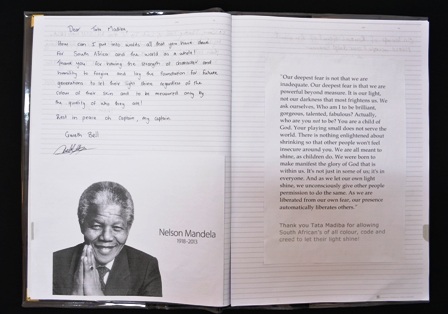 Dear Tata Madiba,
How can I put into words all that you have done
for South Africa and the world as a whole!
Thank you for having the strength of character and
humility to forgive and lay the foundation for future
generations to let their light shine regardless of the
colour of their skin and to be measured only by
the quality of who they are!
Rest in peace oh Captain, my captain.
Gareth Bell
Nelson Mandela
1918-2013
"Our deepest fear is not that we are
inadequate. Our deepest fear is that we are
powerful beyond measure. It is our light,
not our darkness that most frightens us. We
ask ourselves, Who am I to be brilliant,
gorgeous, talented, fabulous? Actually,
who are you not to be? You are a child of
God. Your playing small does not serve the
world. There is nothing enlightened about
shrinking so that other people won't feel
insecure around you. We are all meant to
shine, as children do. We were born to
make manifest the glory of God that is
within us. It's not just in some of us; it's in
everyone. And as we let our own light
shine, we unconsciously give other people
permission to do the same. As we are
liberated from our own fear, our presence
automatically liberates others."
Thank you Tata Madiba for allowing
South African's of all colour, code and
creed to let their light shine!